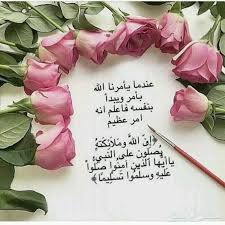 عندما يأمرنا الله
بأمر ويبدأ
بنفسه فاعلم انه
امر عظيم
﴿إِنَّ اللَّهَ وَمَلَائِكَتَهُ
يُصَلُّونَ عَلَى النَّبِيِّ ۚ
يَا أَيُّهَا الَّذِينَ آمَنُوا صَلُّوا
عَلَيْهِ وَسَلِّمُوا تَسْلِيمًا﴾